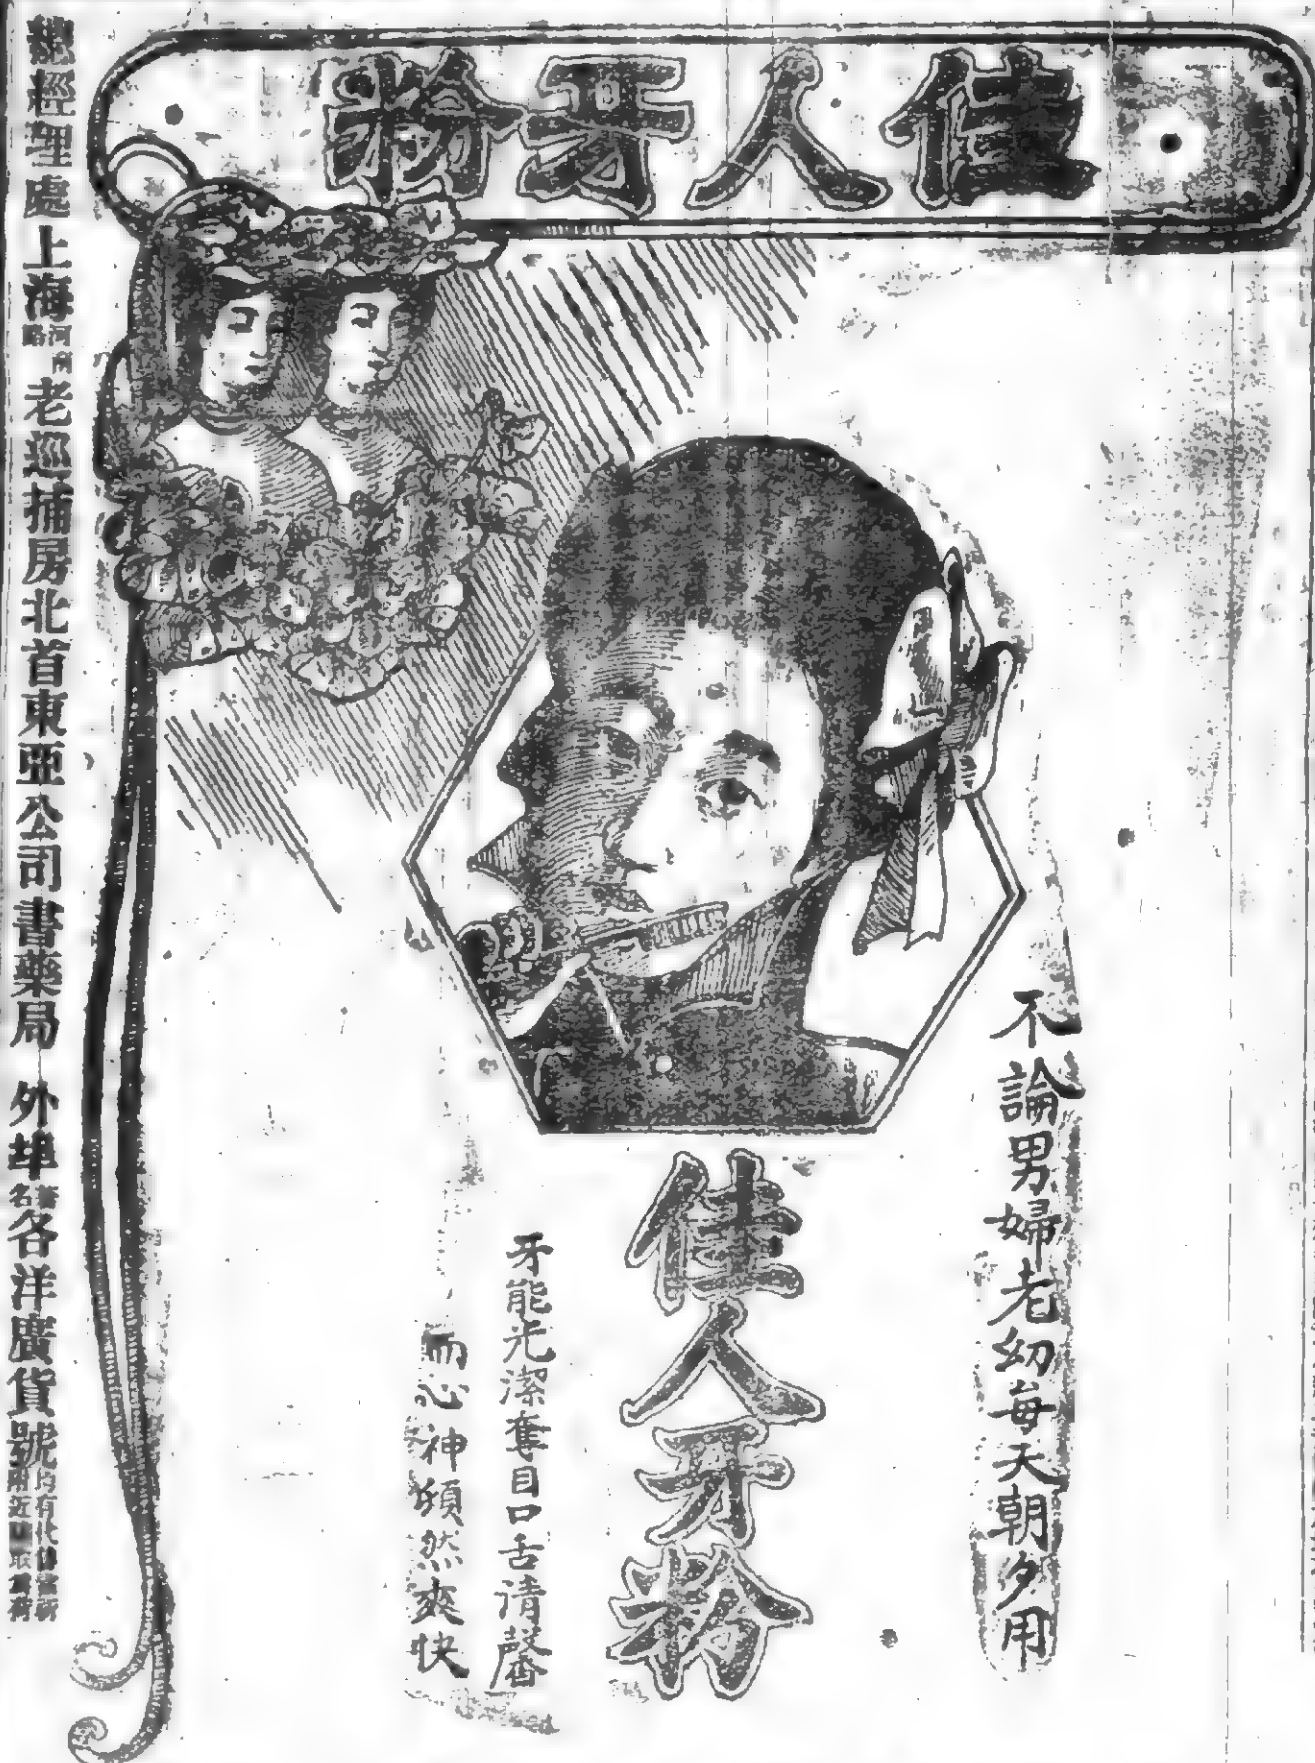 佳人牙粉
不論男婦老幼每天朝夕用
佳人牙粉
牙能光潔奪目口舌清馨
而心神頓然爽快
總經理處上海河南路老巡捕房北首東亞公司書藥局 外埠著名各洋廣貨號均有代